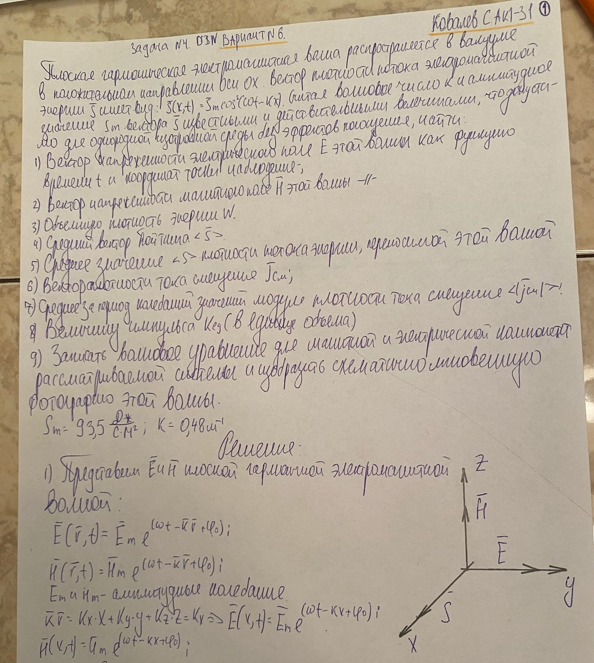 Ковалев САК1-31 ①
Задача N4. ДЗN Вариант N6.
Плоская гармоническая электромагнитная волна распространяется в вакууме
в положительном направлении оси OX. Вектор плотности потока электромагнитной
энергии S̄ имеет вид: S̄(x,t) = Sm cos²(ωt-kx). Считая волновое число k и амплитудное
значение Sm вектора S̄ известными и действительными величинами,
мо для однородной изотропной среды без эффектов поглощения, найти:
1) Вектор напряженности электрического поле Ē этой волны как функцию
времени t и координат точки наблюдение;
2) Вектор напряженности магнитного поле H̄ этой волны -//-
3) Объемную плотность энергии W.
4) Средний вектор Пойтинга <S̄>
5) Среднее значение <S> плотности потока энергии, переносимой этой волной
6) Вектор плотности тока смещение j̄см;
7) Среднее за период колебаний значений модуле плотности тока смещение <|jсм|>!
8) Величину импульса Keg (в единице объема)
9) Записать волновое уравнение для магнитной и электрической компонент
рассматриваемой системы и изобразить схематично мгновенную
фотографию этой волны.
Sm = 93,5 Дж/с·м²; K = 0,48 м⁻¹
Решение:
1) Представим Ē и H̄ плоской гармоничной электромагнитной
волной:
Ē(r̄,t) = Ēm e^(ωt-k̄r̄+φ₀)i
H̄(r̄,t) = H̄m e^(ωt-k̄r̄+φ₀)i
Em и Hm - амплитудные колебание
k̄r̄ = Kx·X + Ky·y + Kz·Z = Kx => Ē(x,t) = Ēm e^(ωt-kx+φ₀)i
H̄(x,t) = H̄m e^(ωt-kx+φ₀)i
Z
H̄
Ē
y
S̄
X